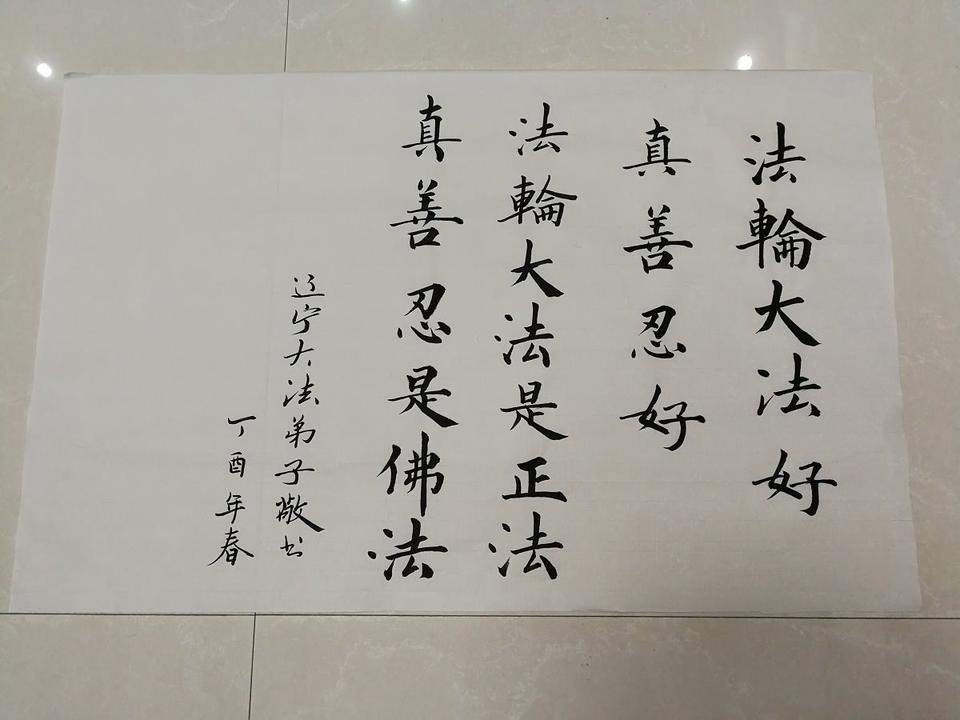 法輪大法好
真善忍好
法輪大法是正法
真善忍是佛法
辽宁大法弟子敬书
丁酉年春